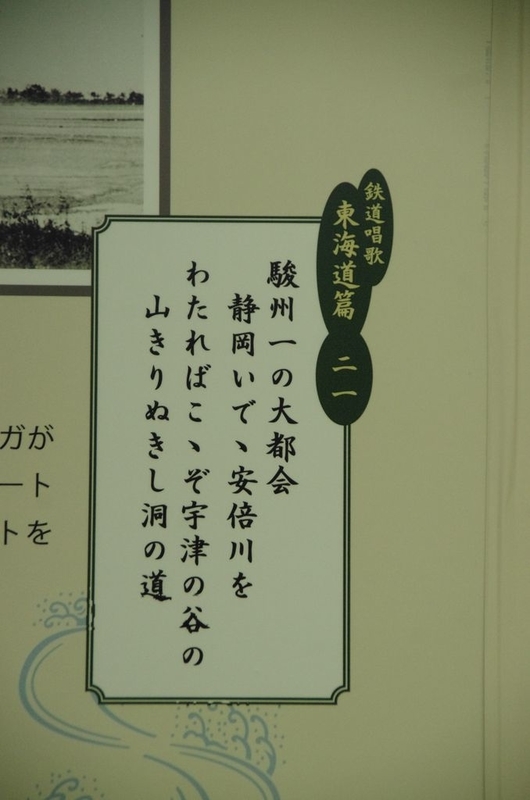 鉄道唱歌
東海道篇 二一
駿州一の大都会
静岡いでヽ安倍川を
わたればこヽぞ宇津の谷の
山きりぬきし洞の道
ガが
ート
トを